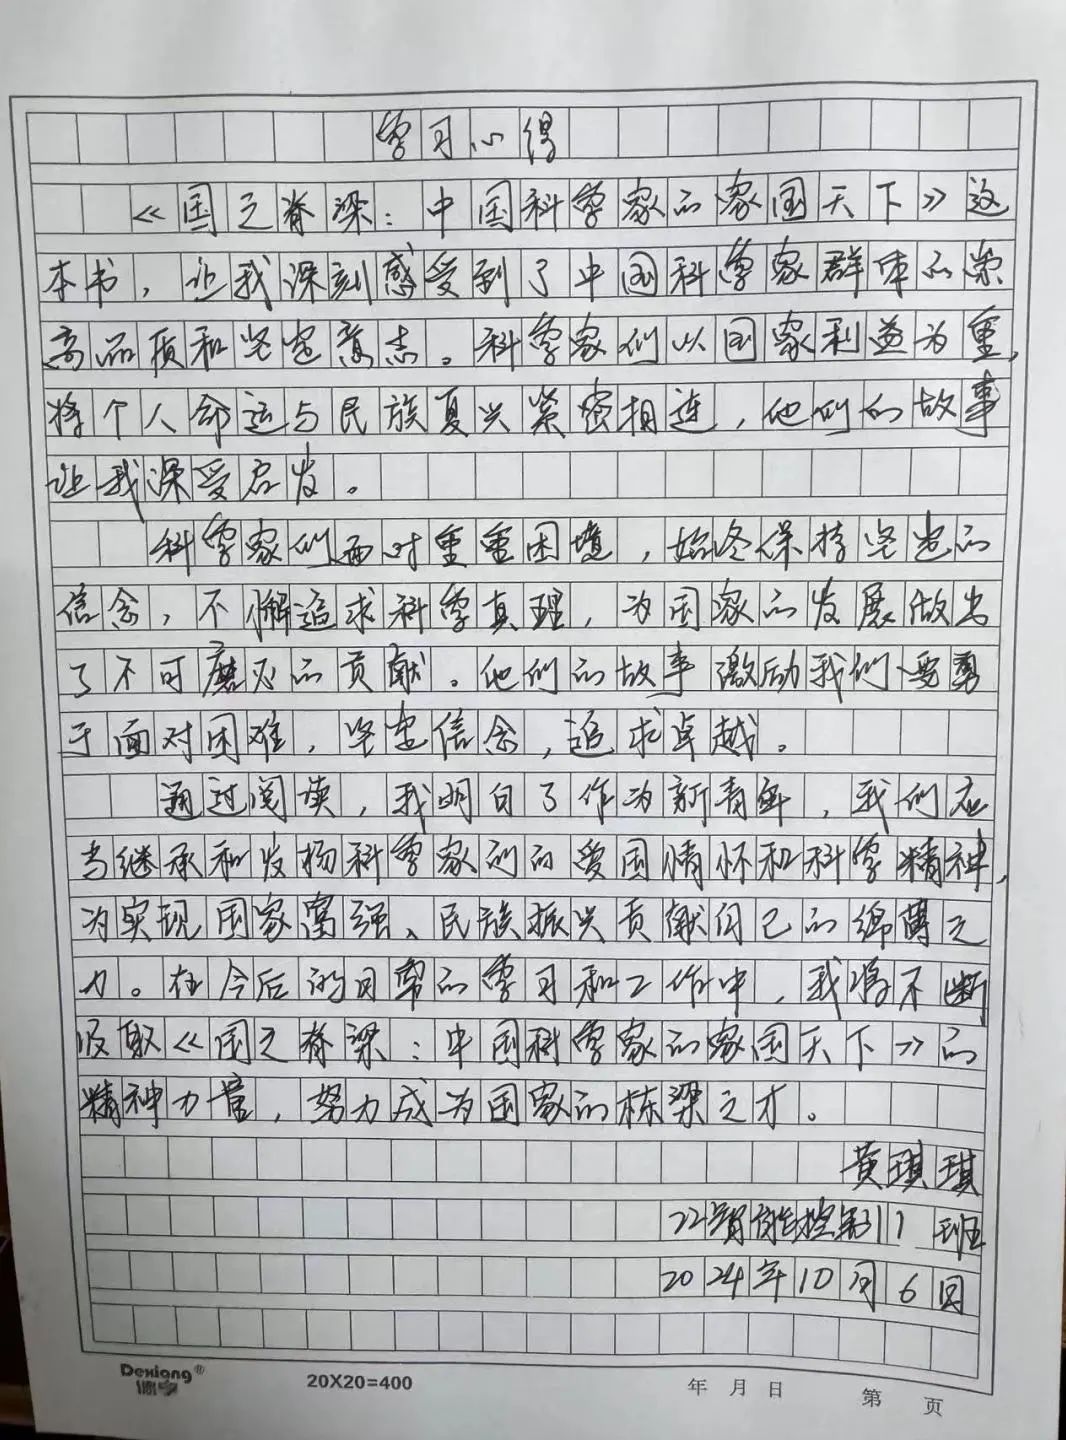 学习心得
《国之脊梁：中国科学家的家国天下》这
本书，让我深刻感受到了中国科学家群体的崇
高品质和坚定意志。科学家们以国家利益为重，
将个人命运与民族复兴紧密相连，他们的故事
让我深受启发。
科学家们面对重重困境，始终保持坚定的
信念，不懈追求科学真理，为国家的发展做出
了不可磨灭的贡献。他们的故事激励我们要勇
于面对困难，坚定信念，追求卓越。
通过阅读，我明白了作为新青年，我们应
当继承和发扬科学家们的爱国情怀和科学精神，
为实现国家富强、民族振兴贡献自己的绵薄之
力。在今后的日常的学习和工作中，我将不断
汲取《国之脊梁：中国科学家的家国天下》的
精神力量，努力成为国家的栋梁之才。
黄琪琪
22智能控制1班
2024年10月6日
Dexiang®
德字
20X20=400
年 月 日 第 页